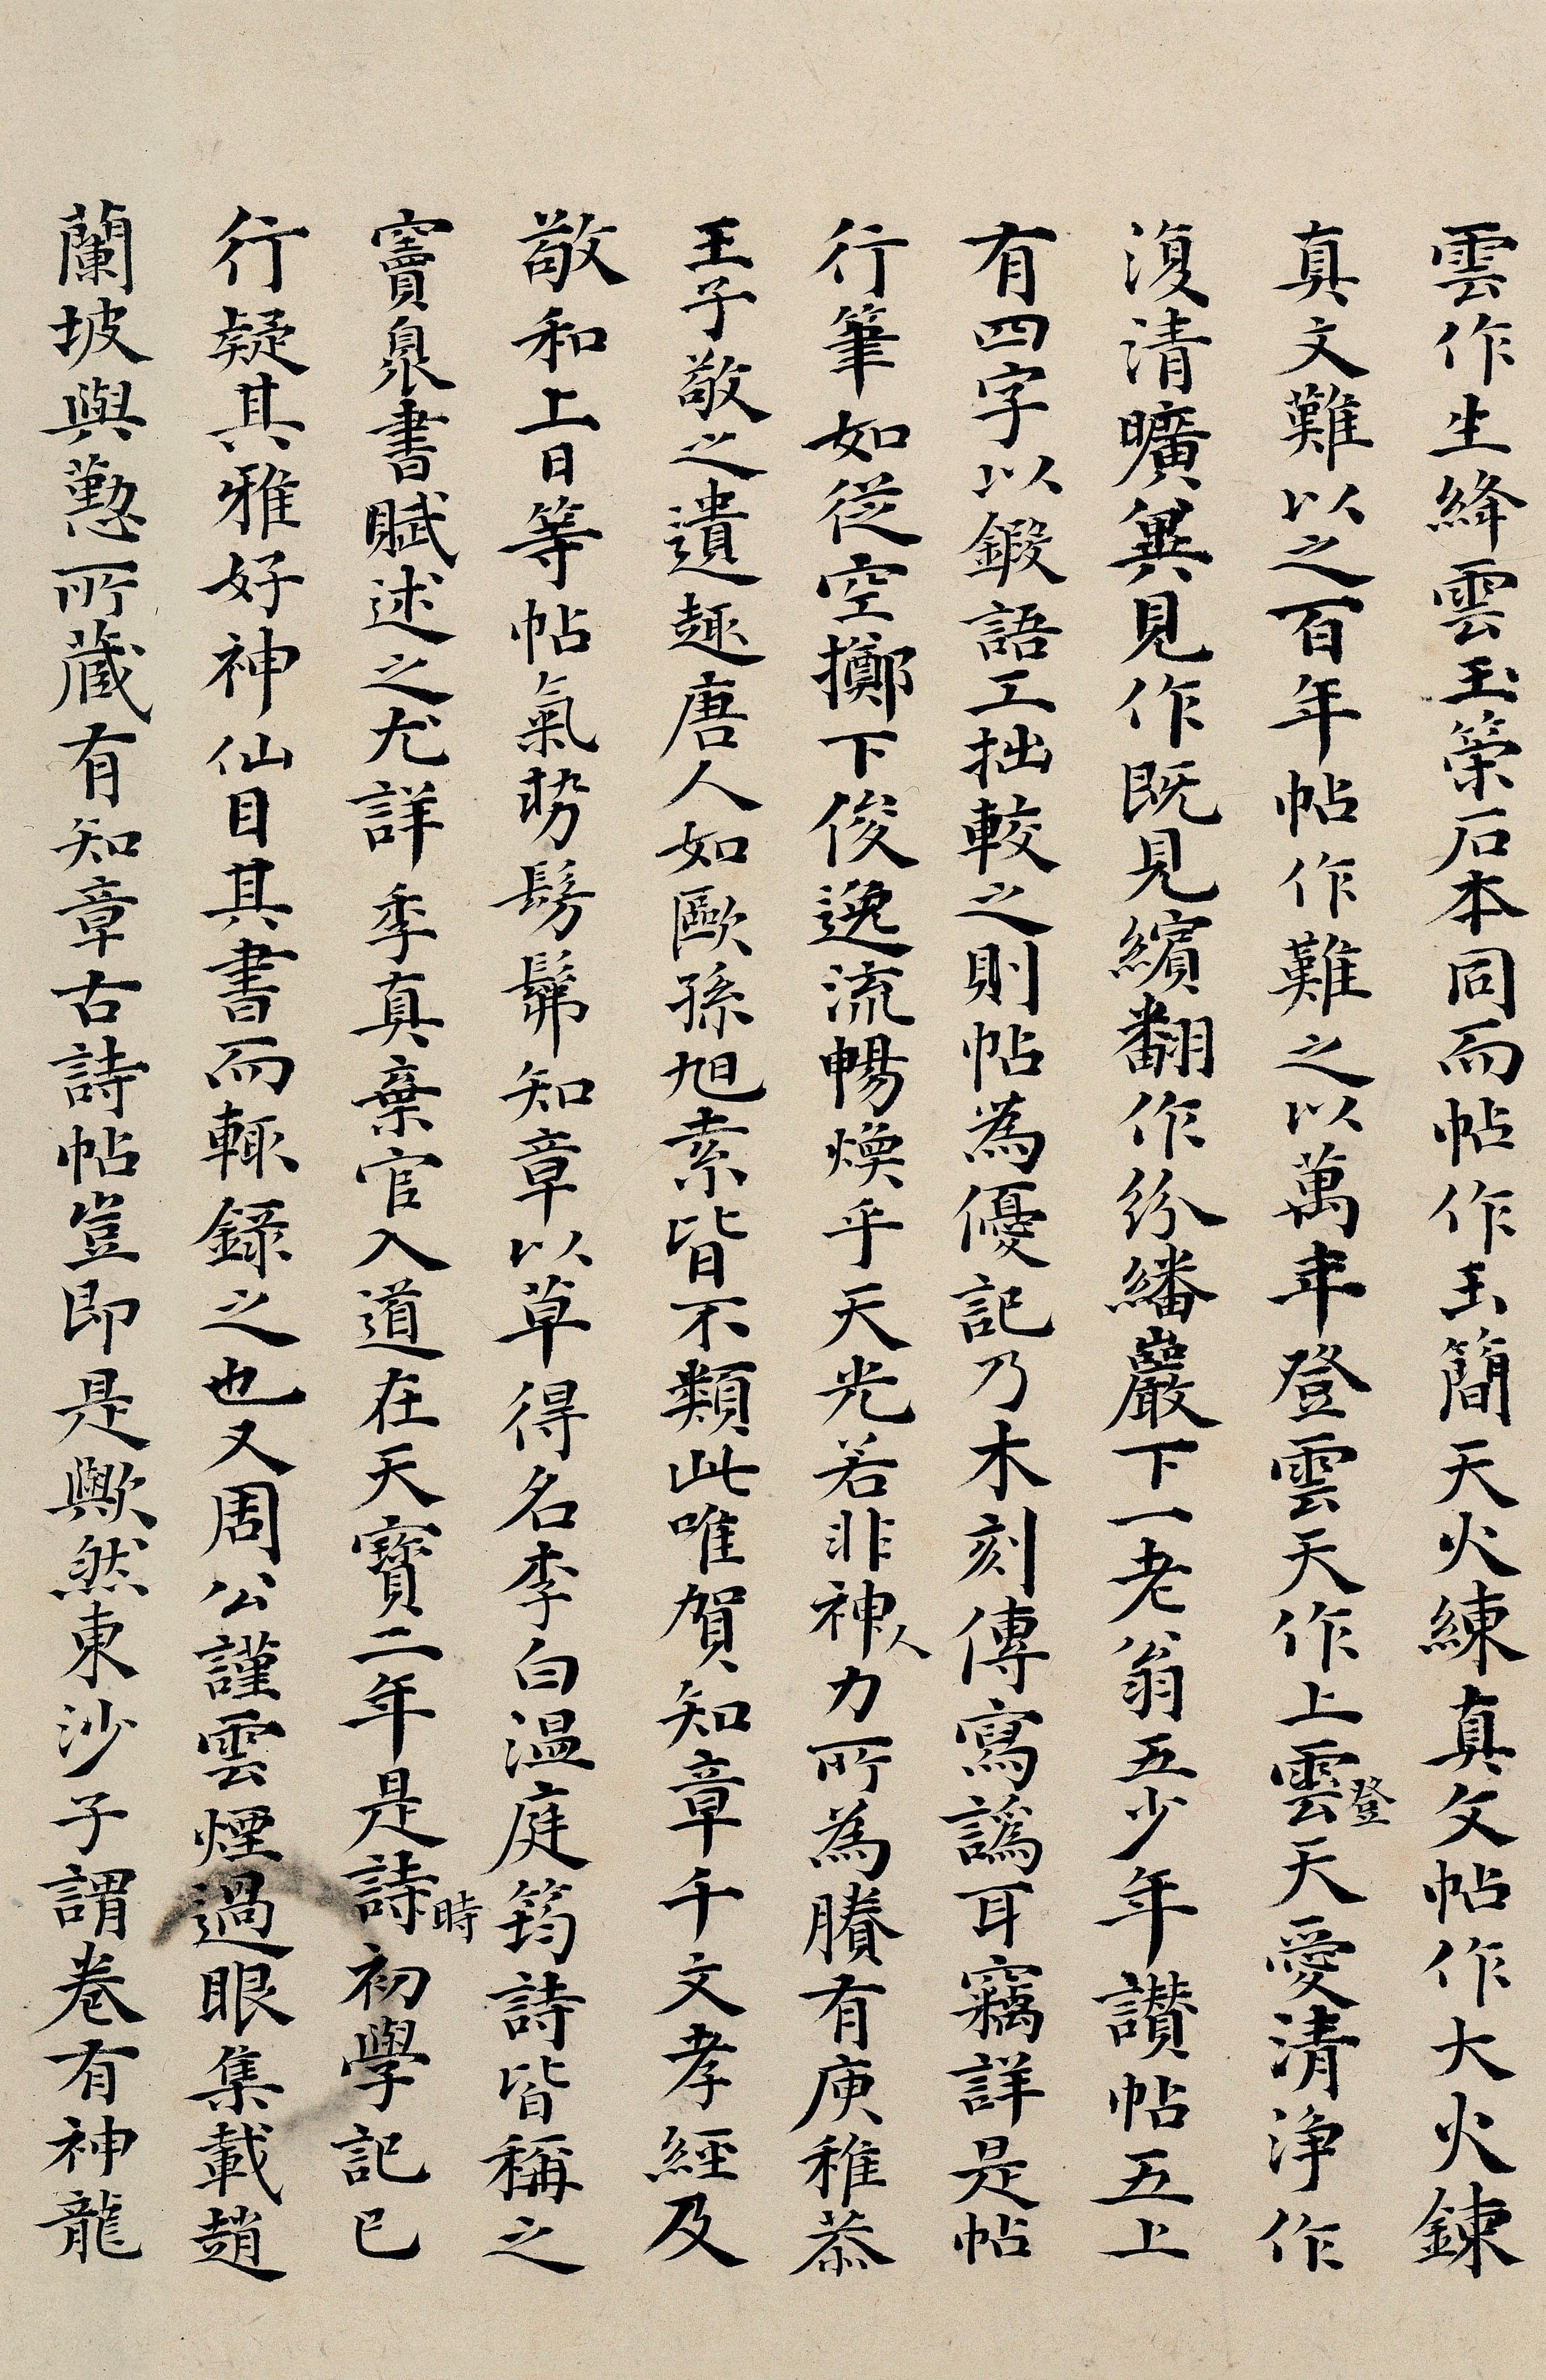 雲作生絳雲玉策石本同而帖作玉簡天火練真文帖作大火鍊
真文難以之百年帖作難之以萬年登雲天作上雲登天愛清淨作
復清曠異見作既見繽翻作紛繙巖下一老翁五少年讚帖五上
有四字以鍛語工拙較之則帖為優記乃木刻傳寫譌耳竊詳是帖
行筆如從空擲下俊逸流暢煥乎天光若非神人力所為賸有庾稚恭
王子敬之遺趣唐人如歐孫旭素皆不類此唯賀知章千文孝經及
敬和上日等帖氣勢髣髴知章以草得名李白溫庭筠詩皆稱之
竇臮書賦述之尤詳季真棄官入道在天寶二年是詩時初學記已
行疑其雅好神仙目其書而輙錄之也又周公謹雲煙過眼集載趙
蘭坡與懃所藏有知章古詩帖豈即是歟然東沙子謂卷有神龍